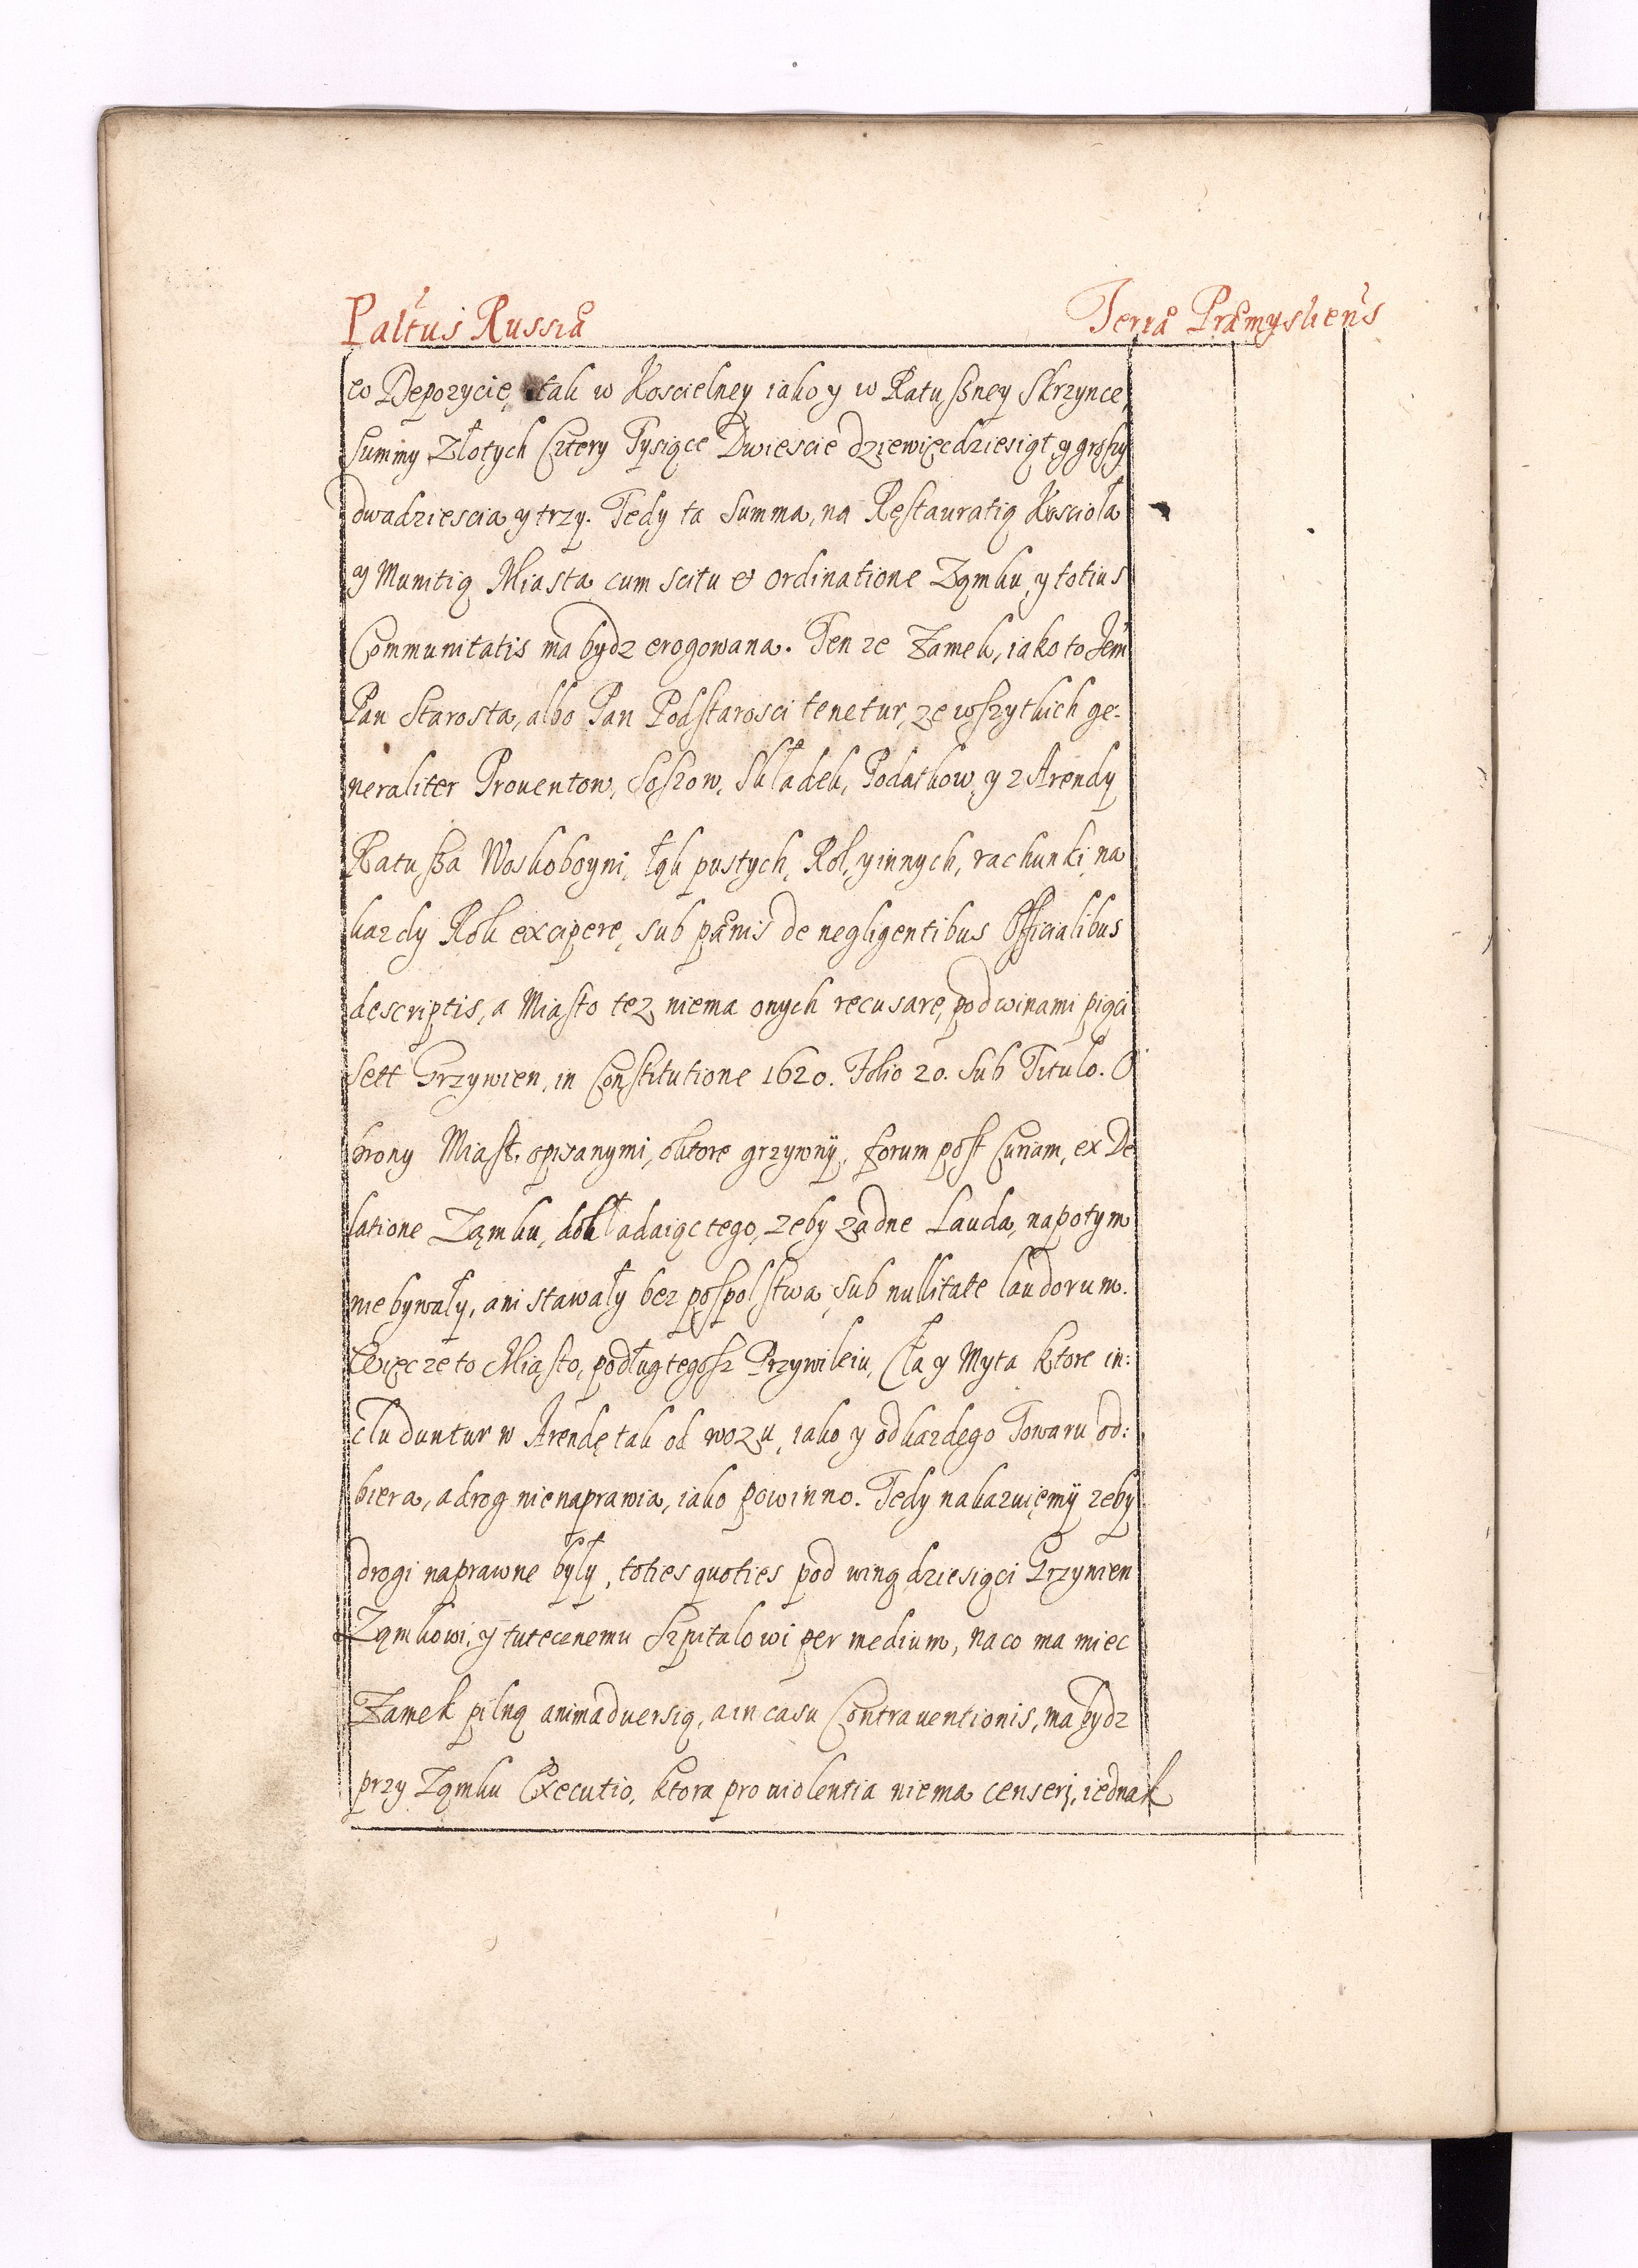 Paltus Russiæ Terræ Præmysliens
w Depozycie, tak w Koscielney iako y w Ratuszney Skrzynce,
Summy Złotych Cztery Tysiące Dwiescie dziewięcdziesiąt, y groszy
dwadziescia y trzy. Tedy ta Summa, na Restauratią Kościoła
y Munitią Miasta cum scitu et ordinatione Zamku, y totius
Communitatis ma bydz erogowana. Ten ze Zamek, iako to Jem
Pan Starosta, albo Pan Podstarosci tenetur, ze wszytkich ge-
neraliter Prouentow, Soszow, Składek, Podatkow, y z Arendy
Ratusza Woskoboyni, łąk pustych, Rol, y innych, rachunki, na
kazdy Rok excipere, sub pænis de negligentibus Officialibus
descriptis, a Miasto tez niema onych recusare, pod winami piąci
sett Grzywien, in Constitutione 1620. Folio 20. sub Titulo. O
brony Miast. opisanymi, oktore grzywny, forum post Curiam, ex De
latione Zamku, dokładaiąc tego, zeby zadne Lauda, napotym
niebywały, ani stawały bez pospolstwa, sub nullitate laudorum.
Więc ze to Miasto, podług tegosz Przywileiu, Cła y Myta ktore in:
cluduntur w Arendę tak od wozu, iako y od kazdego Towaru od:
biera, a drog nienaprawia, iako powinno. Tedy nakazuięmy zeby
drogi naprawne były, toties quoties pod winą dziesiąci Grzywien
Zamkowi, y tutecznemu Szpitalowi per medium, na co ma miec
Zamek pilną animaduersią, a in casu Contrauentionis, ma bydz
przy Zamku Executio, ktora pro uiolentia niema censeri, iednak